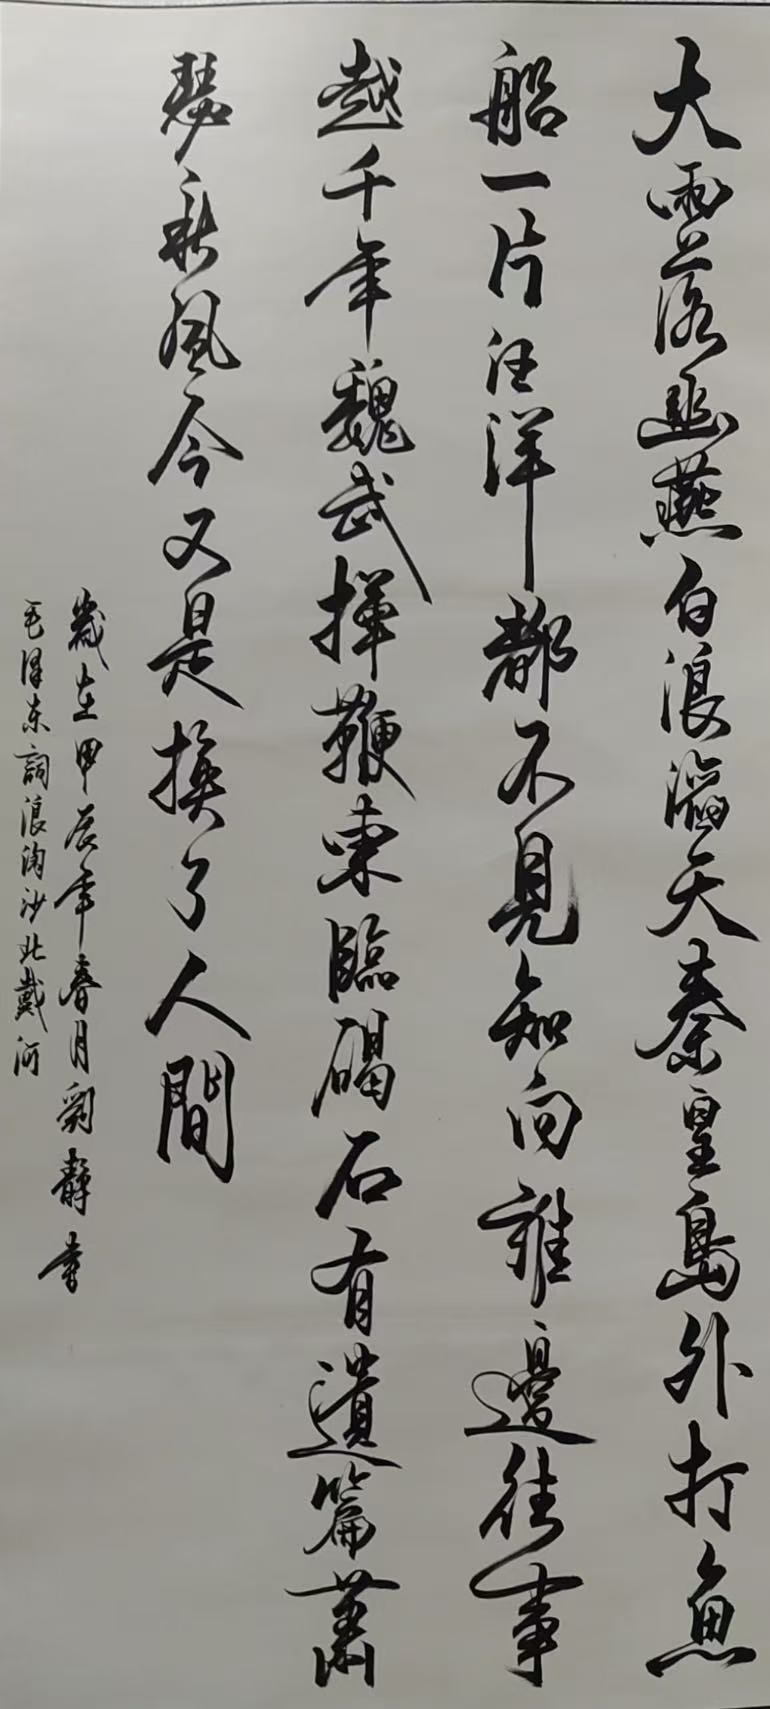 大雨落幽燕白浪滔天秦皇島外打魚
船一片汪洋都不見知向誰邊往事
越千年魏武揮鞭東臨碣石有遺篇蕭
瑟秋風今又是換了人間
歲在甲辰年春月劉靜書
毛澤東詞浪淘沙北戴河